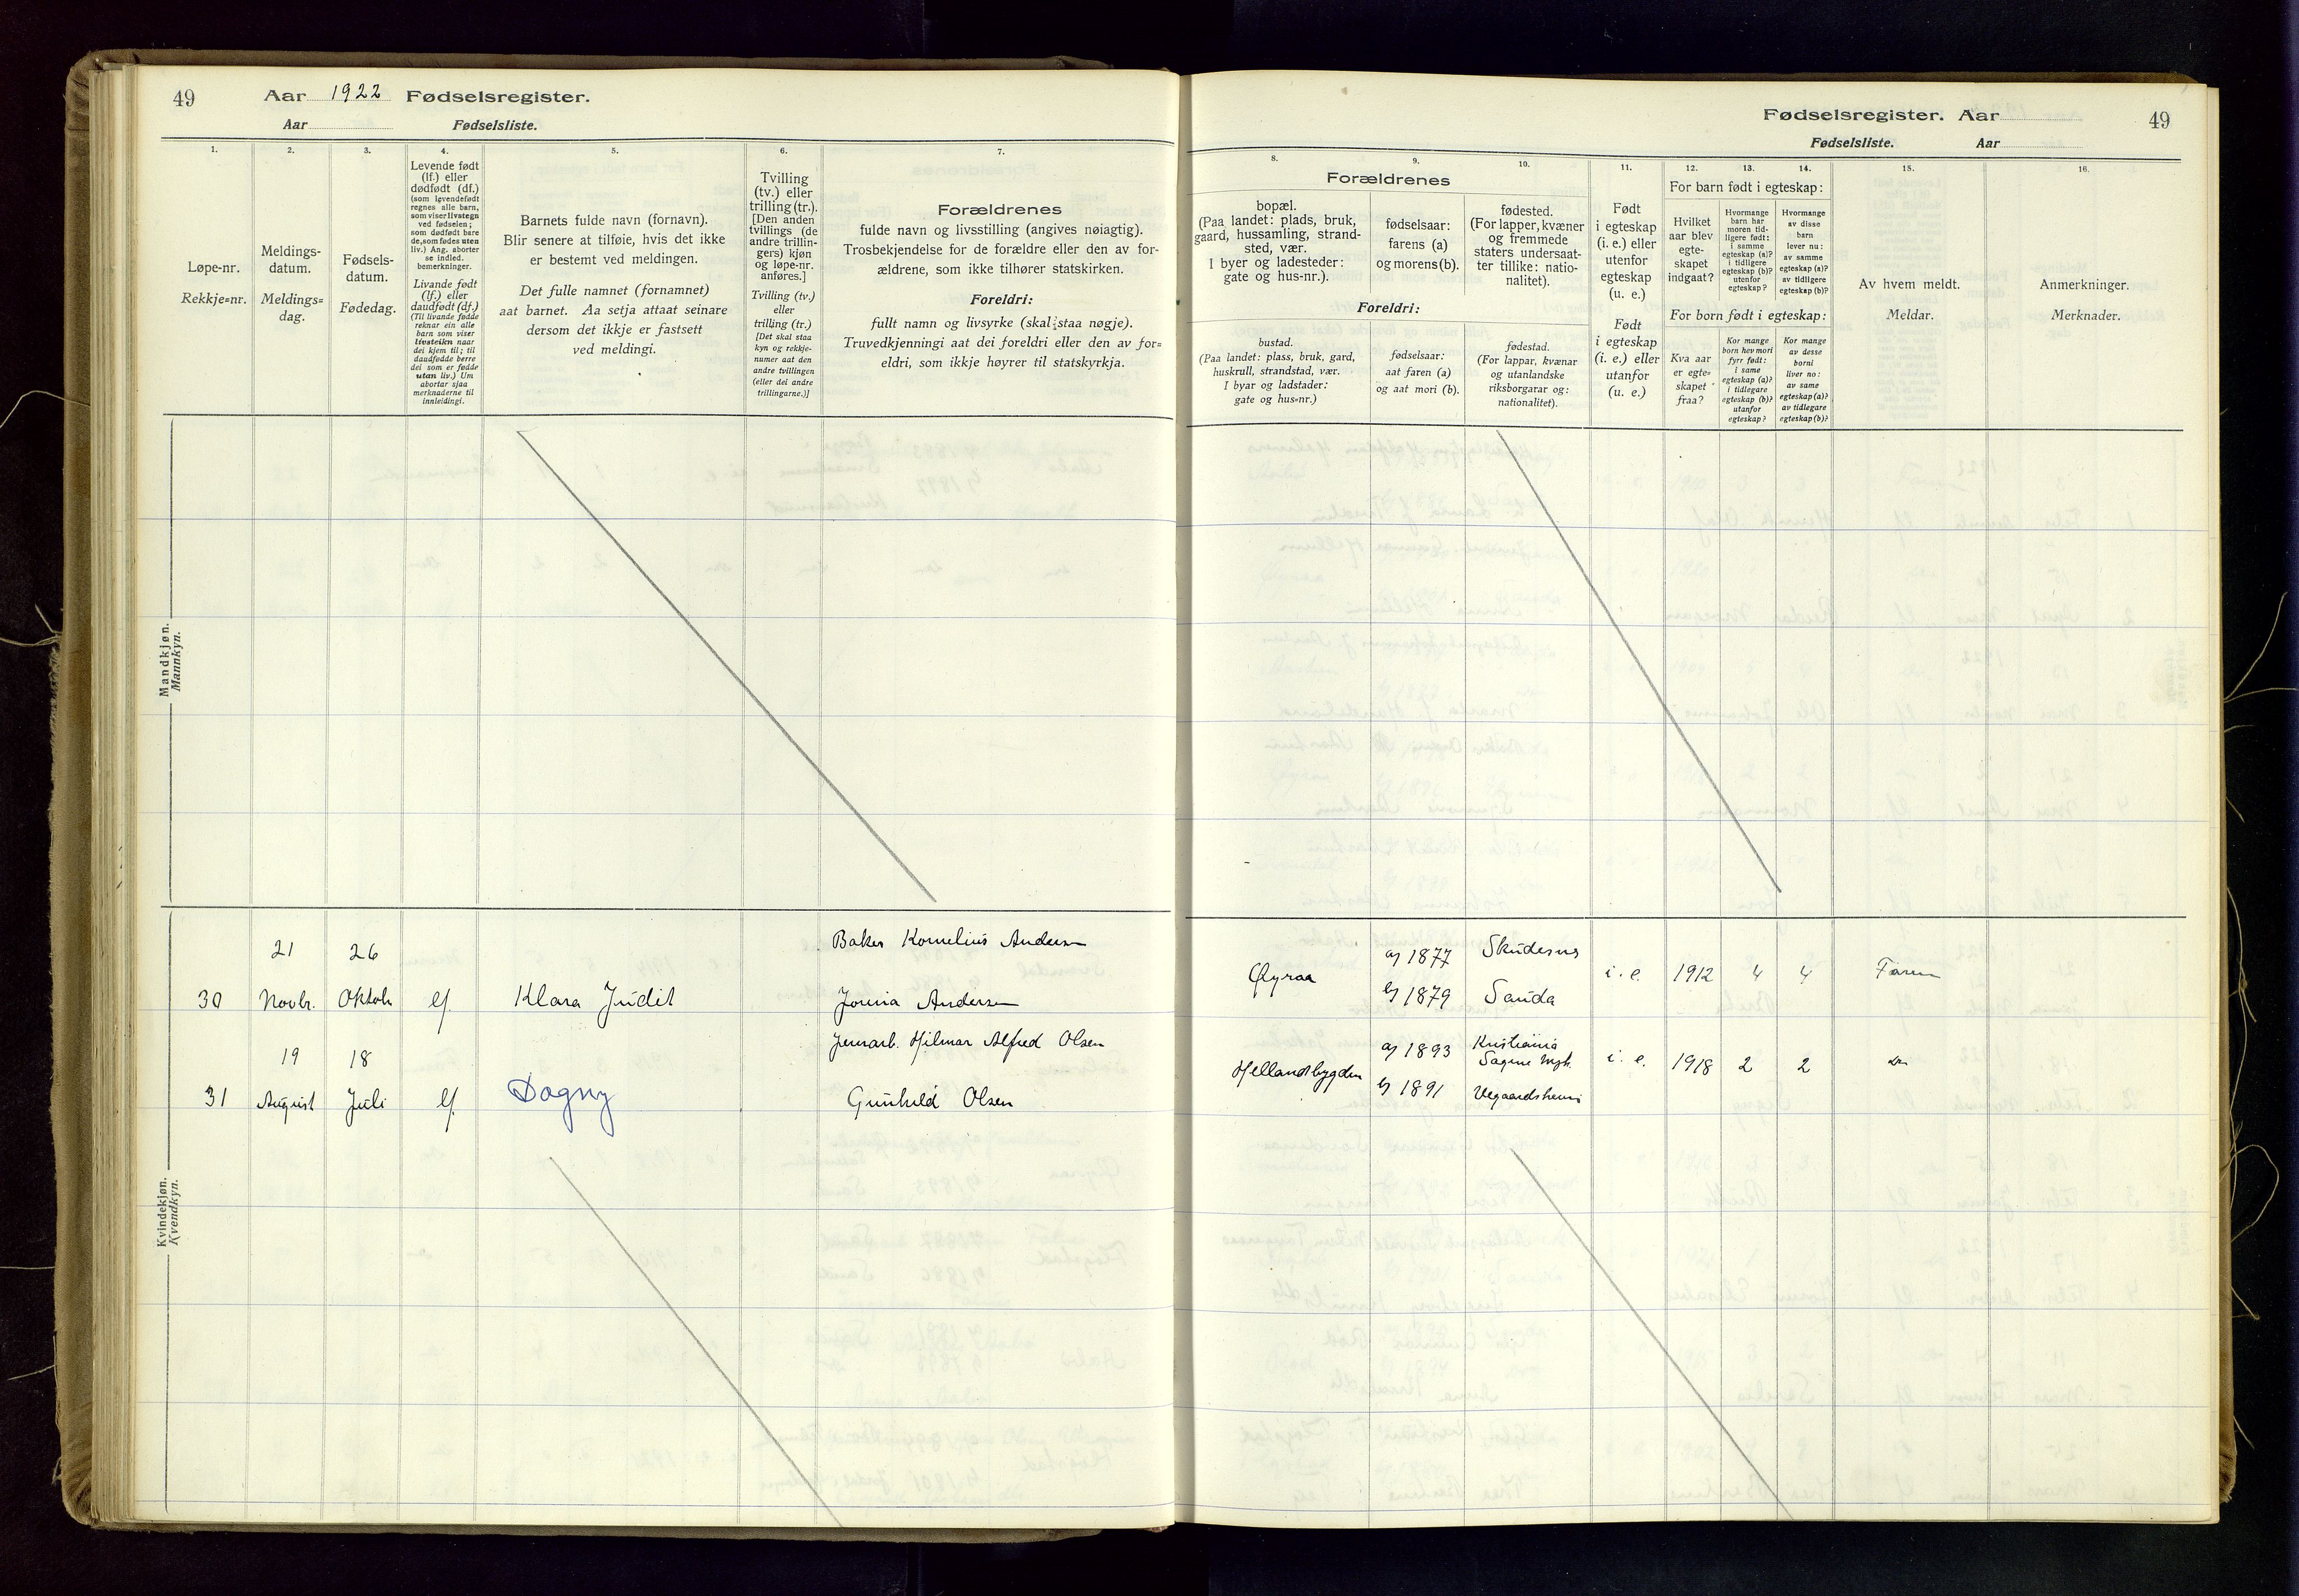 49 Aar 1922 Fødselsregister.
Aar Fødselsliste.
1.
Løpe-nr.
Rekkje=nr.
2.
Meldings-
datum.
Meldings=
dag.
3.
Fødsels-
datum.
Fødedag.
4.
Levende født
(lf.) eller
dødfødt (df.)
(som levendefødt
regnes alle barn,
som viser livstegn
ved fødselen;
som dødfødt bare
de, som fødes uten
liv.) Ang. aborter
se indled.
bemerkninger.
Livande født
(lf.) eller
daudfødt (df.)
(Til livande fødde
reknar ein alle
barn som viser
livsteikn naar
dei kjem til; til
daudfødde berre
dei som er fødde
utan liv.) Um
abortar sjaa
merknaderne til
innleidingi.
5.
Barnets fulde navn (fornavn).
Blir senere at tilføie, hvis det ikke
er bestemt ved meldingen.
Det fulle namnet (fornamnet)
aat barnet. Aa setja attaat seinare
dersom det ikkje er fastsett
ved meldingi.
6.
Tvilling
(tv.) eller
trilling (tr.).
[Den anden
tvillings (de
andre trillin-
gers) kjøn
og løpe-nr.
anføres.]
Tvilling (tv.)
eller
trilling (tr.)
[Det skal staa
kyn og rekkje-
numer aat den
andre tvillingen
(eller dei andre
trillingarne.)]
7.
Forældrenes
fulde navn og livsstilling (angives nøiagtig).
Trosbekjendelse for de forældre eller den av for-
ældrene, som ikke tilhører statskirken.
Foreldri:
fullt namn og livsyrke (skal staa nøgje).
Truvedkjenningi aat dei foreldri eller den av for=
eldri, som ikkje høyrer til statskyrkja.
Mandkjøn.
Mannkyn.
Kvindekjøn.
Kvendkyn.
21 26 Baker Kornelius Andersen
30 Novbr. Oktob lf. Klara Judit Andersen
19 18 Jernarb. Hilmar Alfred Olsen
31 August Juli lf. Dagny Gunhild Olsen
Fødselsregister. Aar 49
Fødselsliste. Aar
8.
Forældrenes
bopæl.
(Paa landet: plads, bruk,
gaard, hussamling, strand-
sted, vær.
I byer og ladesteder:
gate og hus-nr.).
Foreldri:
bustad.
(Paa landet: plass, bruk, gard,
huskrull, strandstad, vær.
I byar og ladstader:
gate og hus=nr.)
9.
fødselsaar:
farens (a)
og morens (b).
fødselsaar:
aat faren (a)
og aat mori (b).
10.
fødested.
(For lapper, kvæner
og fremmede
staters undersaat-
ter tillike: natio-
nalitet).
fødestad.
(For lappar, kvænar
og utanlandske
riksborgarar og:
nationalitet).
11.
Født
i egteskap
(i. e.) eller
utenfor
egteskap
(u. e.)
Født
i egteskap
(i. e.) eller
utanfor
(u. e.)
12. 13. 14.
For barn født i egteskap:
Hvilket
aar blev
egte-
skapet
indgaat?
Hvormange
barn har
moren tid-
ligere født:
i samme
egteskap (a)?
i tidligere
egteskap (b)?
utenfor
egteskap?
Hvormange
av disse
barn
lever nu:
av samme
egteskap (a)?
av tidligere
egteskap (b)?
For born født i egteskap:
Kva aar
er egte=
skapet
fraa?
Kor mange
born hev mori
fyrr født:
i same
egteskap (a)?
i tidlegare
egteskap (b)?
utanfor
egteskap?
Kor mange
av desse
borni
liver no:
av same
egteskap (a)?
av tidlegare
egteskap (b)?
15.
Av hvem meldt.
Meldar.
16.
Anmerkninger.
Merknader.
a) 1877 Skudesnes
Øyraa i. e. 1912 4 4 Faren
b) 1879 Sauda
a) 1893 Kristiania
Sagene
Hellandsbygden i. e. 1918 2 2 do
b) 1891 Vegaardsheim